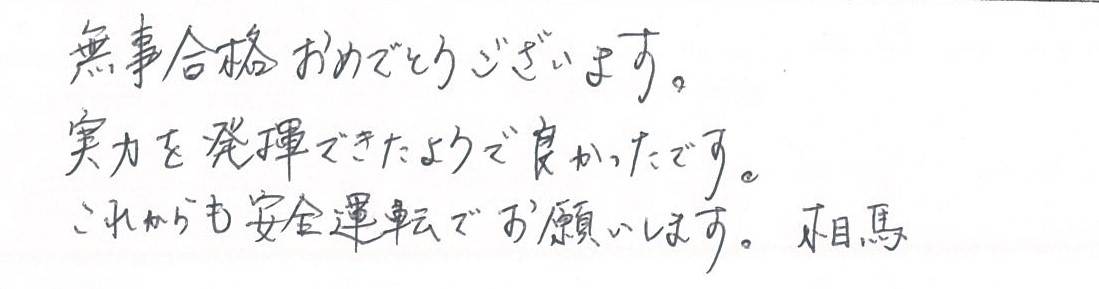 無事合格おめでとうございます。
実力を発揮できたようで良かったです。
これからも安全運転でお願いします。 相馬